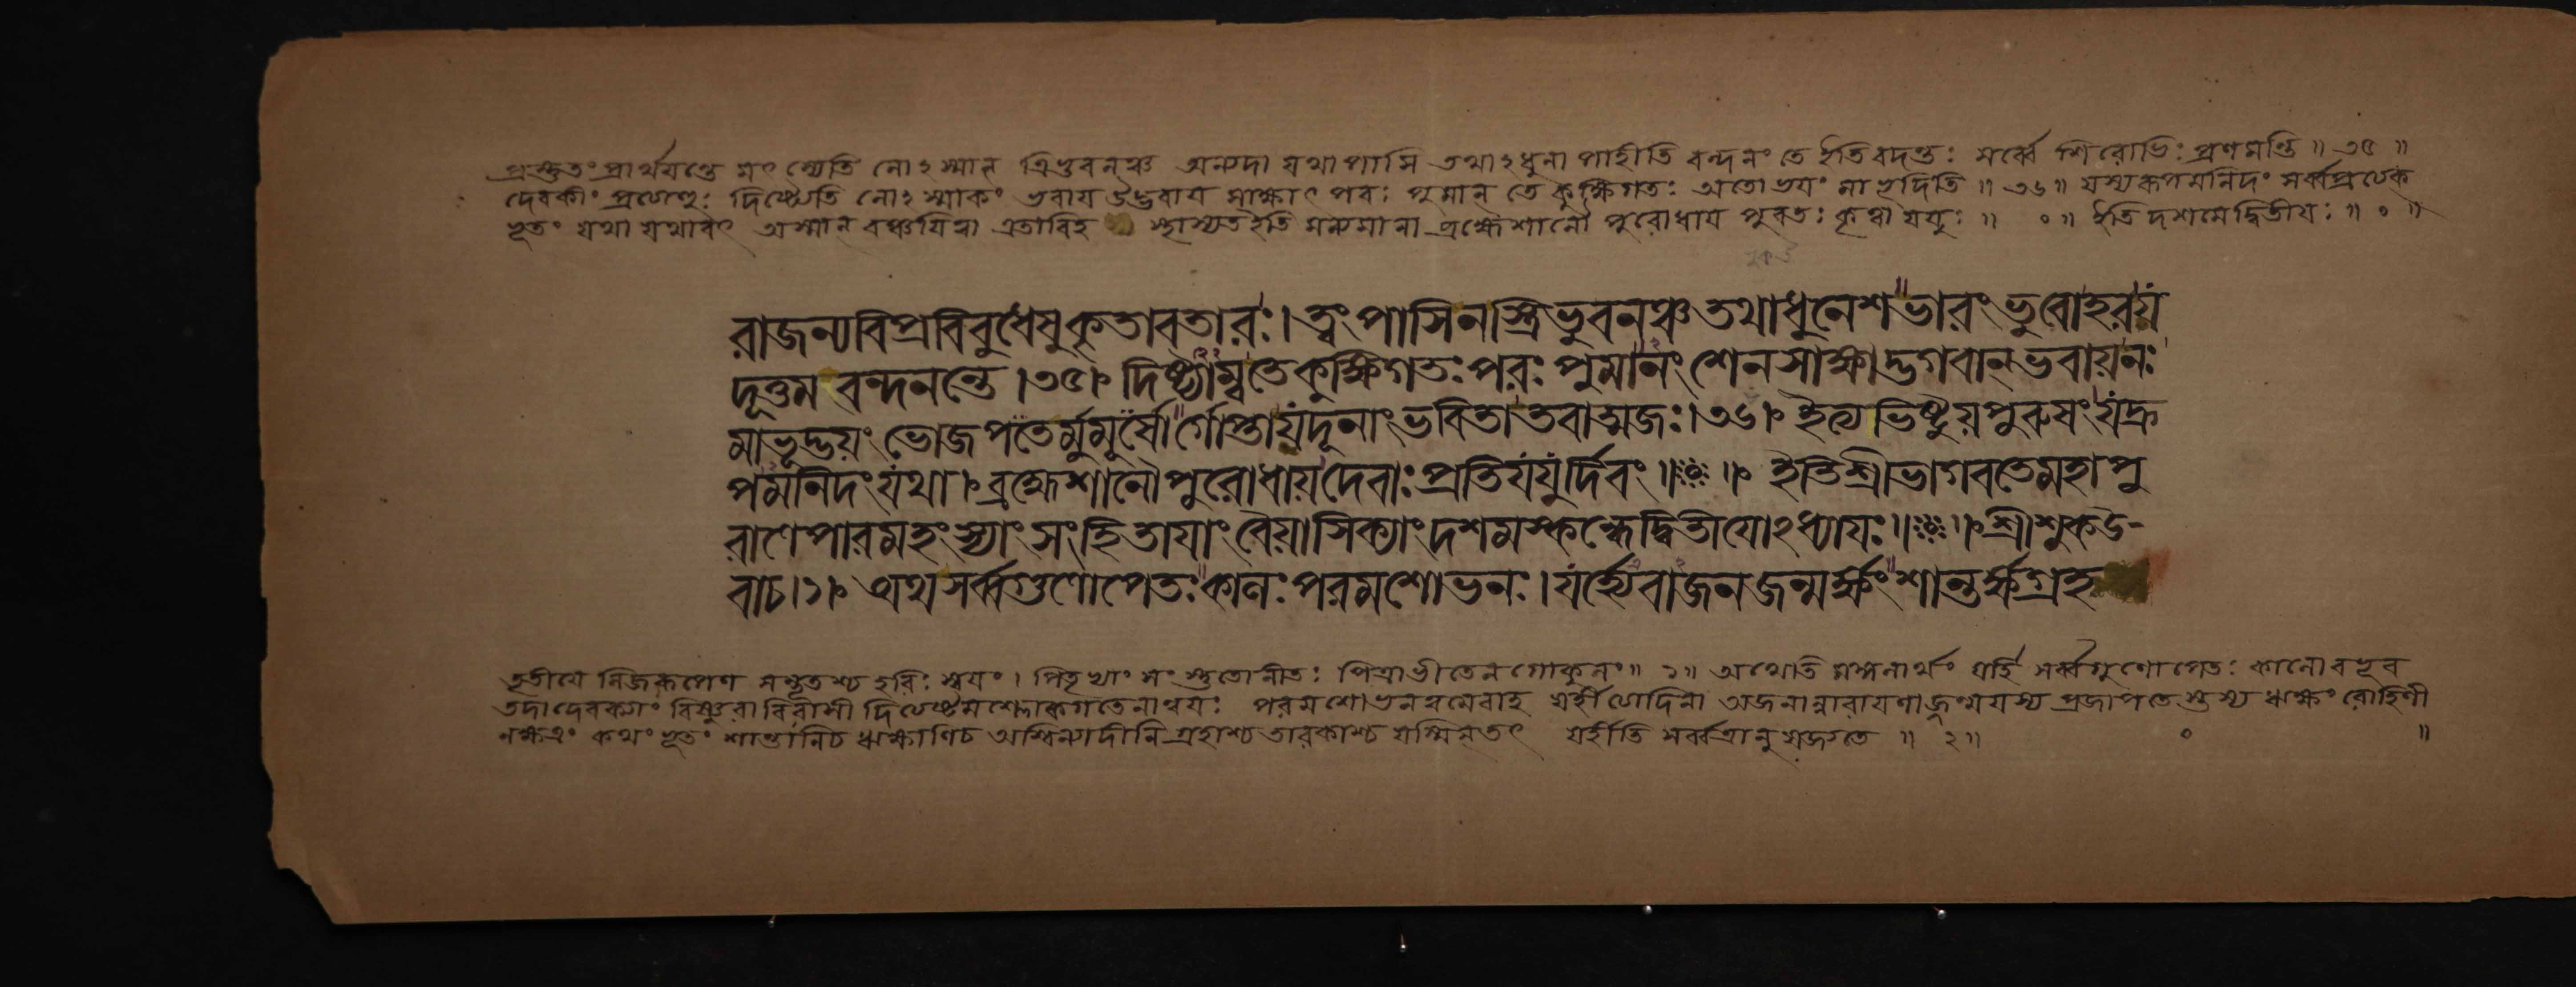 প্রস্তুতং প্রার্থযন্তে মৎস্যেতি নোঽস্মান্ ত্রিভুবনঞ্চ অন্যদা যথা পাসি তথাঽধুনা পাহীতি বন্দনং তে ইতি বদন্তঃ সর্ব্বে শিরোভিঃ প্রণমন্তি ॥ ৩৫ ॥
দেবকীং প্রত্যূচুঃ দিষ্ট্যেতি নোঽস্মাকং ভবায উদ্ভবায সাক্ষাৎ পরঃ পুমান্ তে কুক্ষিগতঃ অতো ভযং মা ভূদিতি ॥ ৩৬ ॥ যস্য রূপমনিদং সর্ব্বপ্রত্যেক
ভূতং যথা যথাবৎ অস্মান্ বঞ্চযিত্বা এতাবিহ স্থাস্যত ইতি মন্যমানা ব্রহ্মেশানৌ পুরোধায পুরতঃ কৃত্বা যযুঃ ॥ ० ॥ ইতি দশমে দ্বিতীযঃ ॥ ० ॥
রাজন্যবিপ্রবিবুধেষুকৃতাবতারঃ। ত্বংপাসিনস্ত্রিভুবনঞ্চতথাধুনেশভারংভুবোহরয
দূত্তমবন্দনন্তে ।৩৫। দিষ্ট্যাম্বতেকুক্ষিগতঃপরঃপুমানংশেনসাক্ষাদ্ভগবান্ভবায়নঃ
মাভূদ্ভয়ংভোজপতের্মুমূর্ষোর্গোপ্তাযদূনাংভবিতাতবাত্মজঃ।৩৬। ইত্যভিষ্টূয়পুরুষংযদ্রূ
পমনিদংযথা। ব্রহ্মেশানৌপুরোধায়দেবাঃপ্রতিযযুর্দিবং॥ ॥ ইতিশ্রীভাগবতেমহাপু
রাণেপারমহংস্যাংসংহিতাযাংবৈয়াসিক্যাংদশমস্কন্ধেদ্বিতীযোঽধ্যাযঃ॥ ॥ শ্রীশুকউ-
বাচ।১। অথসর্ব্বগুণোপেতঃকালঃপরমশোভনঃ। যর্হ্যেবাজনজন্মর্ক্ষংশান্তর্ক্ষগ্রহ
তৃতীযে নিজরূপেণ সম্ভূতশ্চ হরিঃ স্বযং। পিতৃভ্যাং সংস্তুতো নীতঃ পিত্রা ভীতেন গোকুলং ॥ ১ ॥ অথেতি মঙ্গলার্থং যর্হি সর্ব্বগুণোপেতঃ কালো বভূব
তদা দেবক্যাং বিষ্ণুরাবিরাসীদিত্যষ্টমশ্লোকগতেনান্বযঃ পরমশোভনত্বমেবাহ যর্হীত্যাদিনা অজনান্নারাযণাজ্জন্ম যস্য প্রজাপতেস্তস্য ঋক্ষং রোহিণী
নক্ষত্রং কথংভূতং শান্তানিচ ঋক্ষাণিচ অশ্বিন্যাদীনি গ্রহাশ্চ তারকাশ্চ যস্মিন্ তৎ যর্হীতি সর্ব্বত্রানুষজ্জতে ॥ ২ ॥ ० ॥